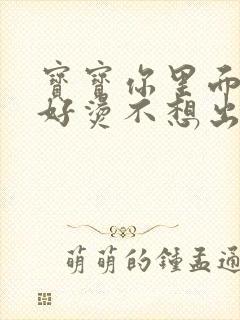 寶寶你里面
好燙不想出
萌萌的鍾孟通